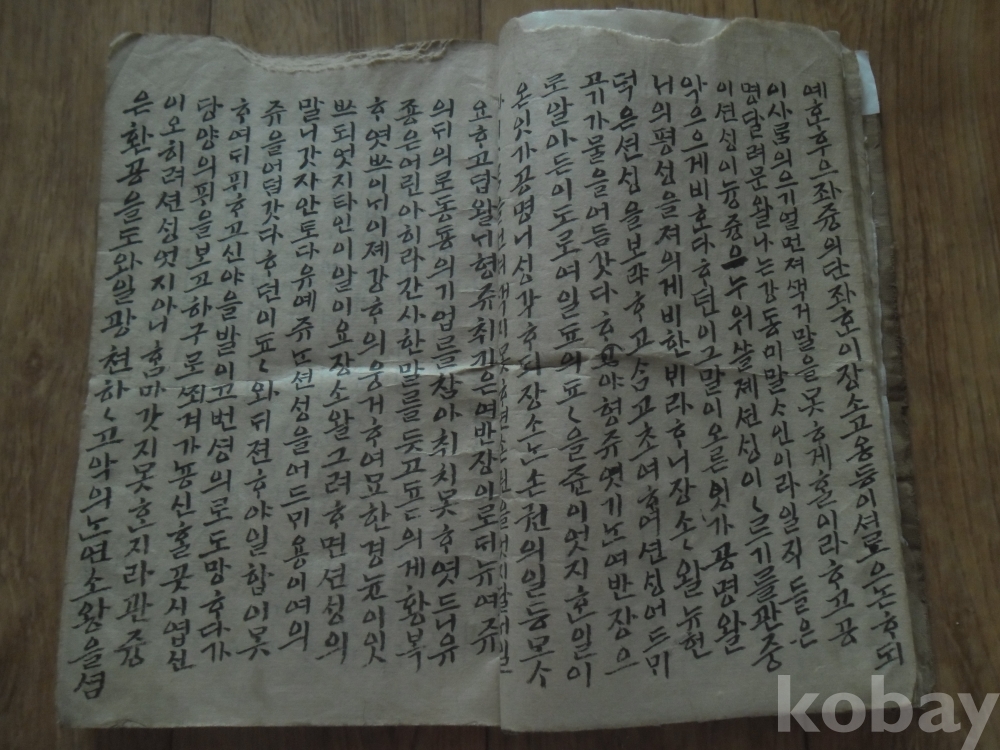 예ᄒᆞᆫ후으좌즁의단좌ᄒᆞ이장소고옹등이셔로은논ᄒᆞ되
이사ᄅᆞᆷ의으기얼먼져ᄭᅥᆨ거말을못ᄒᆞ게ᄒᆞᆯ이라ᄒᆞ고공
명달려문왈나는강동미말ᄉᆞ인이라일직들은
이션싱이늉즁으누워살졔션싱이〻르기를관중
악으으게비ᄒᆞ다ᄒᆞ던이그말이오른잇가공명왈
니의평싱을져의게비한비라ᄒᆞ니장소〻왈뉴현
덕은션싱을보랴ᄒᆞ고ᄉᆞᆷ고초여ᄒᆞ여션싱어드미
고기가물을어듬갓다ᄒᆞ야형쥬엿기ᄂᆞᆫ여반장으
로알아든이도로여일됴의됴〻을쥬이엇지ᄒᆞᆫ일이
온잇가공명니싱각ᄒᆞ되장소ᄂᆞᆫ손권의일등모ᄉᆞ
요ᄒᆞ고답왈니형쥬취킹은여반장이로ᄃᆡ뉴여쥬
의ᄃᆡ의로동둉의기업를참아취치못ᄒᆞ엿드니유
죵은어린아히라간사한말를듯고됴〻의게황복
ᄒᆞ엿쓰이니이졔강ᄒᆞ의웅거ᄒᆞ여묘한경눈이잇
쓰되엇지타인이알이요장소왈그려ᄒᆞ면션성의
말니갓자안토다유예쥬ᄂᆞᆫ션성을어드미용이여의
쥬을어덤갓다ᄒᆞ던이됴〻와ᄃᆡ젼ᄒᆞ야일합이못
ᄒᆞ여ᄃᆡ퓌ᄒᆞ고신야을발이고번셩의로도망ᄒᆞ다가
당양의픠을보고하구로ᄶᅩᆺ겨가뇽신ᄒᆞᆯ곳시업신
이오히려션싱엇지아니ᄒᆞᆷ마갓지못ᄒᆞᆫ지라관즁
은환공을도와일광쳔하〻고악의ᄂᆞᆫ연소왕을섬
kobay